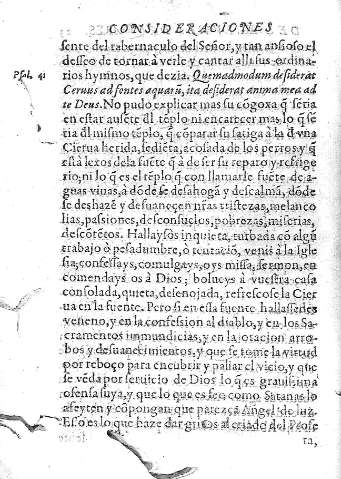 CONSIDERACIONES
sente del tabernaculo del Señor, y tan ansioso el
desseo de tornar à verle y cantar alli sus ordina-
rios hymnos, que dezia. Quemadmodum desiderat
Psal. 41
Ceruus ad fontes aquarũ, ita desiderat anima mea ad
te Deus. No pudo explicar mas su cõgoxa q̃ sẽtia
en estar ausẽte dl tẽplo ni encarecer mas lo q̃ se
tia dl mismo tẽplo, q̃ cõparar su fatiga à la d vna
Cierua herida, sediẽta, acosada de los perros, y q̃
està lexos dela fuẽte q̃ à de ser su reparo y refrige
rio; ni lo q̃ es el tẽplo q̃ con llamarle fuẽte de a-
guas viuas, à dõde se desahoga y descalma, dõde
se deshazẽ y desuanecen nr̃as tristezas, melanco
lias, passiones, desconsuelos, pobrezas, miserias,
descõtẽtos. Hallaysos inquieta, turbada cõ algũ
trabajo ò pesadumbre, ò tentaciõ, venis à la Igle
sia, confessays, comulgays, oys missa, sermon, en
comendays os à Dios, bolueys à vuestra casa
consolada, quieta, desenojada, refrescose la Cier
ua en la fuente. Pero si en essa fuente hallassedes
veneno, y en la confession al diablo, y en los Sa-
cramentos inmundicias, y en la oracion arro-
bos y desuanecimientos, y que se tome la virtud
por reboço para encubrir y paliar el vicio, y que
se vẽda por seruicio de Dios lo q̃ es grauissima
ofensa suya, y que lo que es feo como Satanas lo
afeyten y cõpongan que parezca Angel de luz.
Esso es lo que haze dar gritos al criado del Profe
ta,